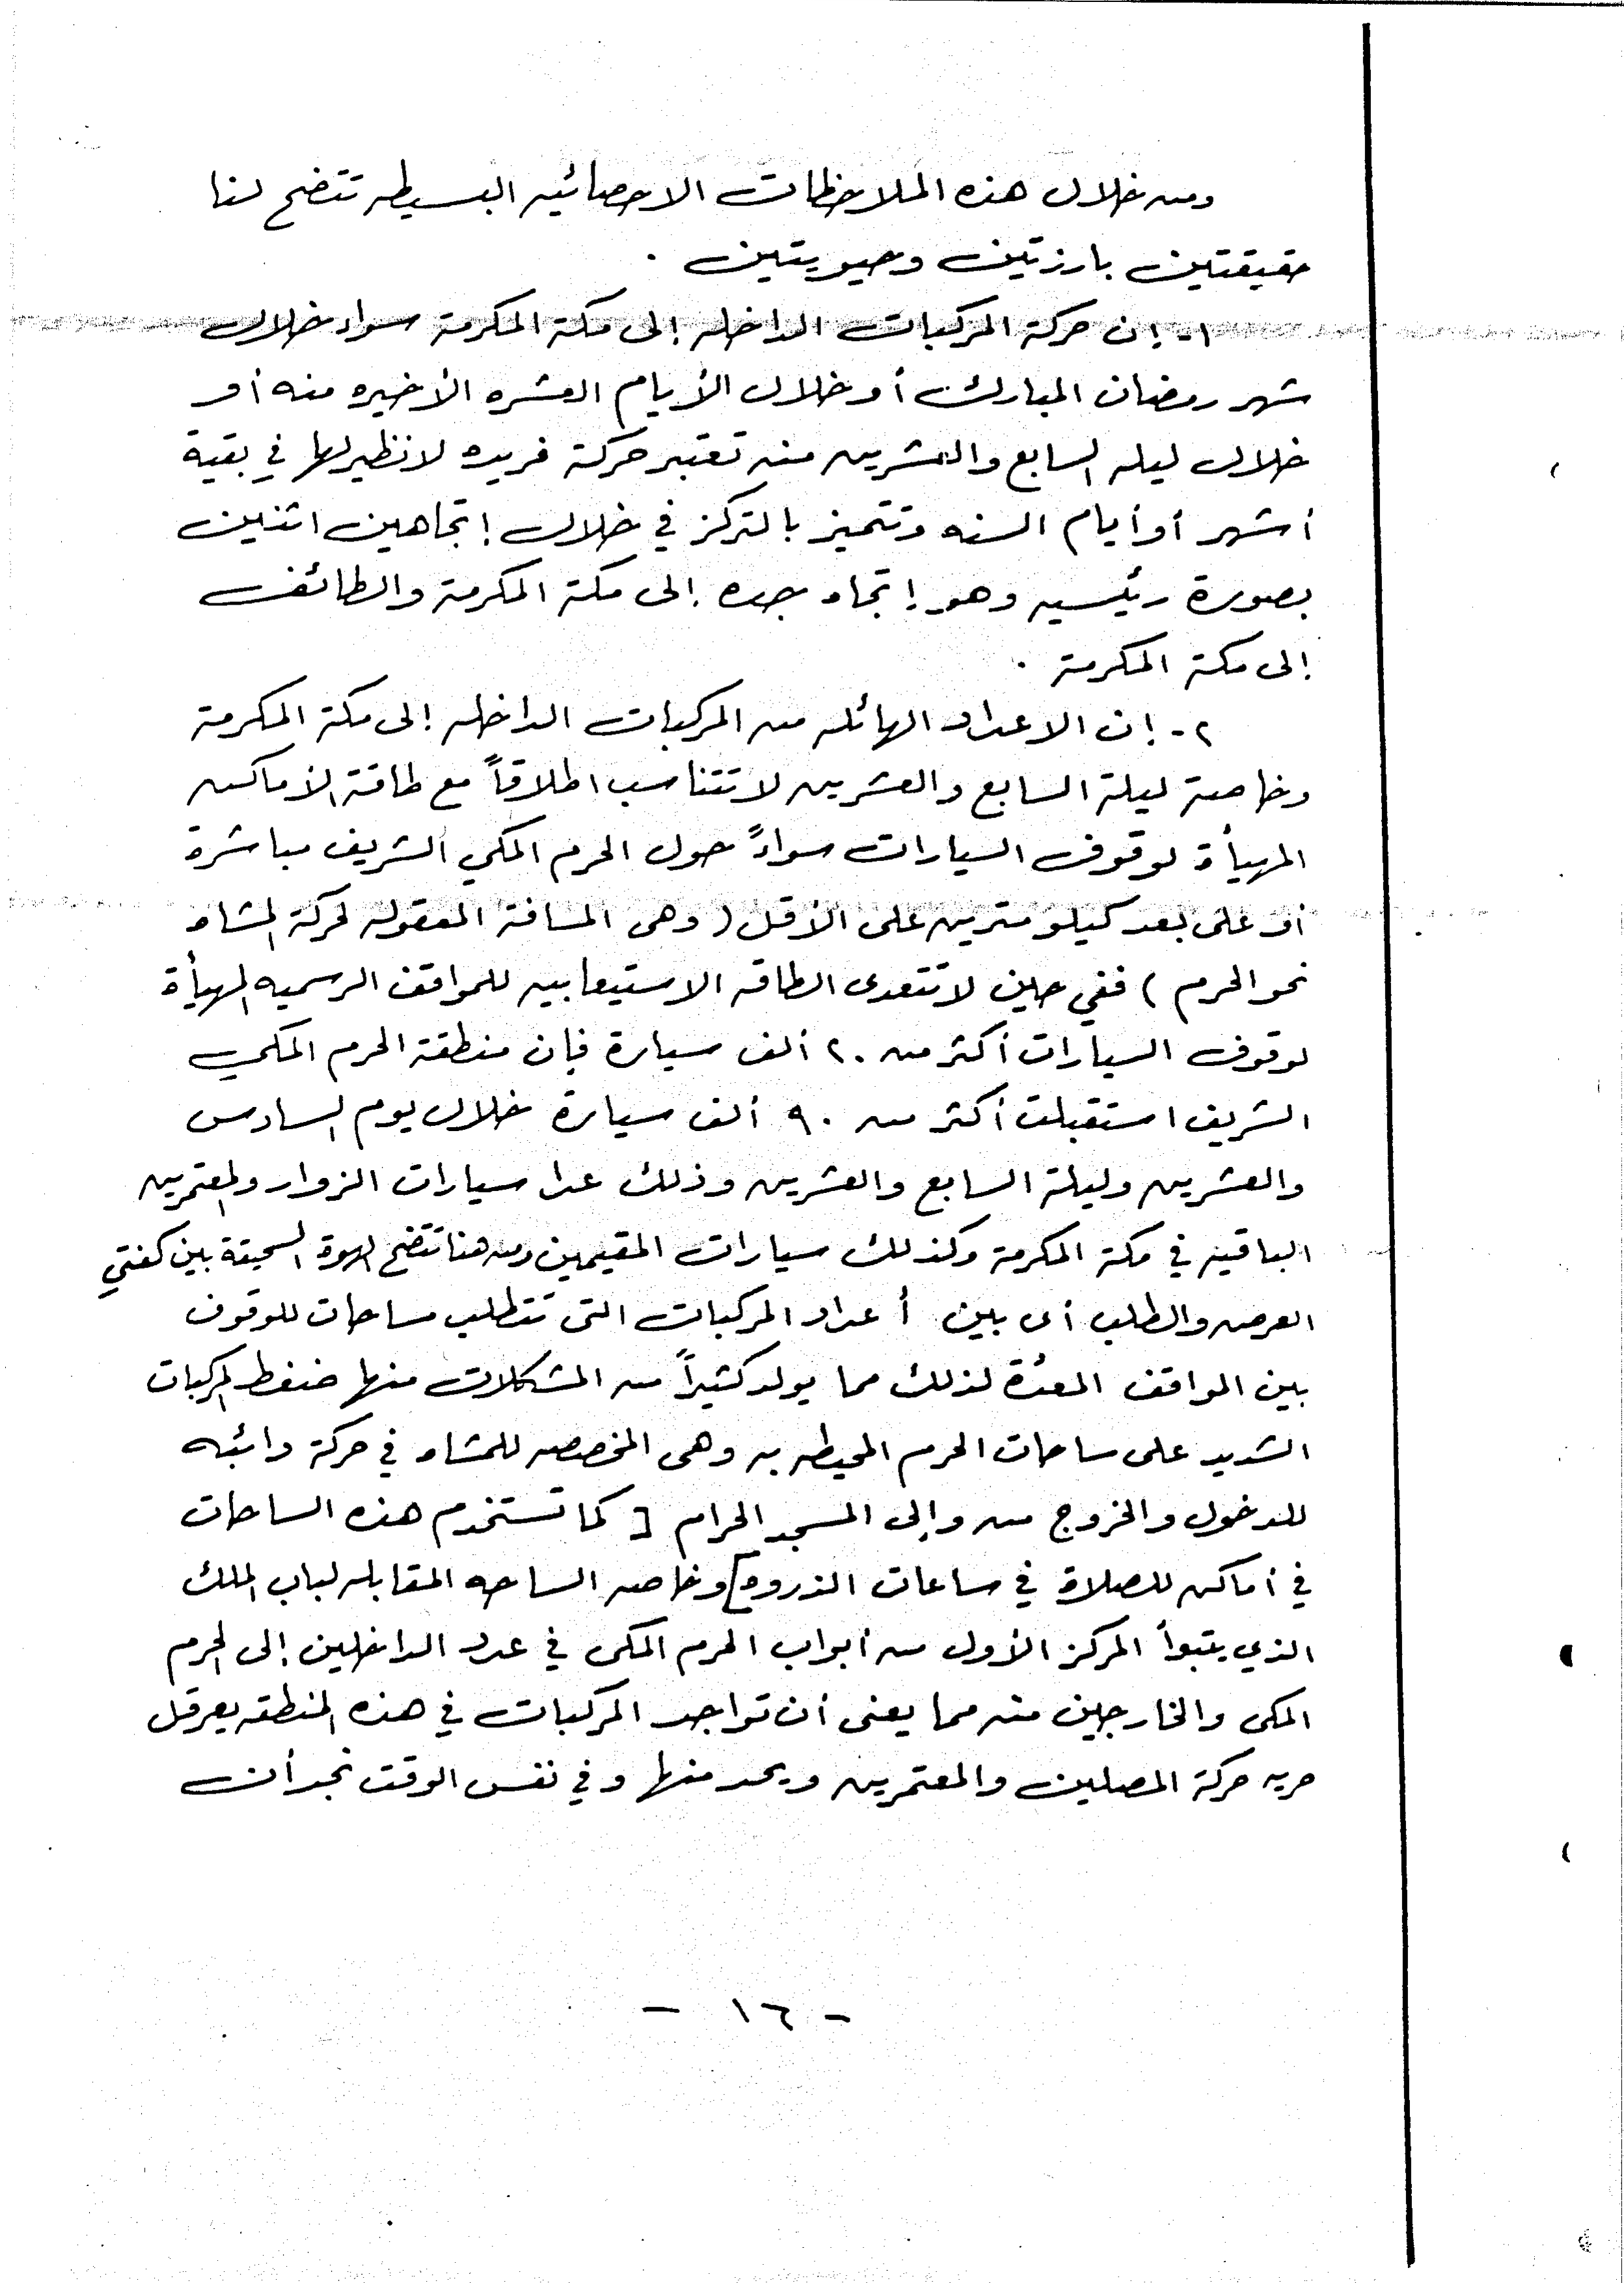 ومن خلال هذه الملاحظات الاحصائيه البسيطه تتضح لنا
حقيقتين بارزتين وحيويتين .
١- إن حركة المركبات الداخله إلى مكة المكرمة سواء خلال
شهر رمضان المبارك أو خلال الأيام العشره الأخيره منه أو
خلال ليله السابع والعشرين منه تعتبر حركة فريده لا نظير لها في بقية
أشهر أو أيام السنه وتتميز بالتركز في خلال إتجاهين اثنين
بصورة رئيسيه وهو إتجاه جده إلى مكة المكرمة والطائف
إلى مكة المكرمة .
٢- إن الاعداد الهائله من المركبات الداخله إلى مكة المكرمة
وخاصة ليلة السابع والعشرين لا تتناسب اطلاقاً مع طاقة الأماكن
المهيأة لوقوف السيارات سواءً حول الحرم المكي الشريف مباشرة
أو على بعد كيلو مترين على الأقل ( وهى المسافة المعقوله لحركة المشاه
نحو الحرم ) ففي حين لا تتعدى الطاقه الاستيعابيه للمواقف الرسميه المهيأة
لوقوف السيارات أكثر من ٢٠ ألف سيارة فإن منطقة الحرم المكي
الشريف استقبلت أكثر من ٩٠ ألف سيارة خلال يوم السادس
والعشرين وليلة السابع والعشرين وذلك عدا سيارات الزوار والمعتمرين
الباقين في مكة المكرمة وكذلك سيارات المقيمين ومن هنا تتضح الهوة السحيقة بين كفتي
العرض والطلب أى بين أعداد المركبات التى تتطلب مساحات للوقوف
بين المواقف المعدة لذلك مما يولد كثيراً من المشكلات منها ضغط المركبات
الشديد على ساحات الحرم المحيطه به وهى المخصصه للمشاه في حركة دائبه
للدخول والخروج من وإلى المسجد الحرام [ كما تستخدم هذه الساحات
في أماكن للصلاة في ساعات الذروه ] وخاصه الساحه المقابله لباب الملك
الذي يتبوأ المركز الأول من أبواب الحرم المكى في عدد الداخلين إلى الحرم
المكى والخارجين منه مما يعنى أن تواجد المركبات في هذه المنطقه يعرقل
حريه حركة المصلين والمعتمرين ويحد منها وفي نفس الوقت نجد أن
- ١٦ -